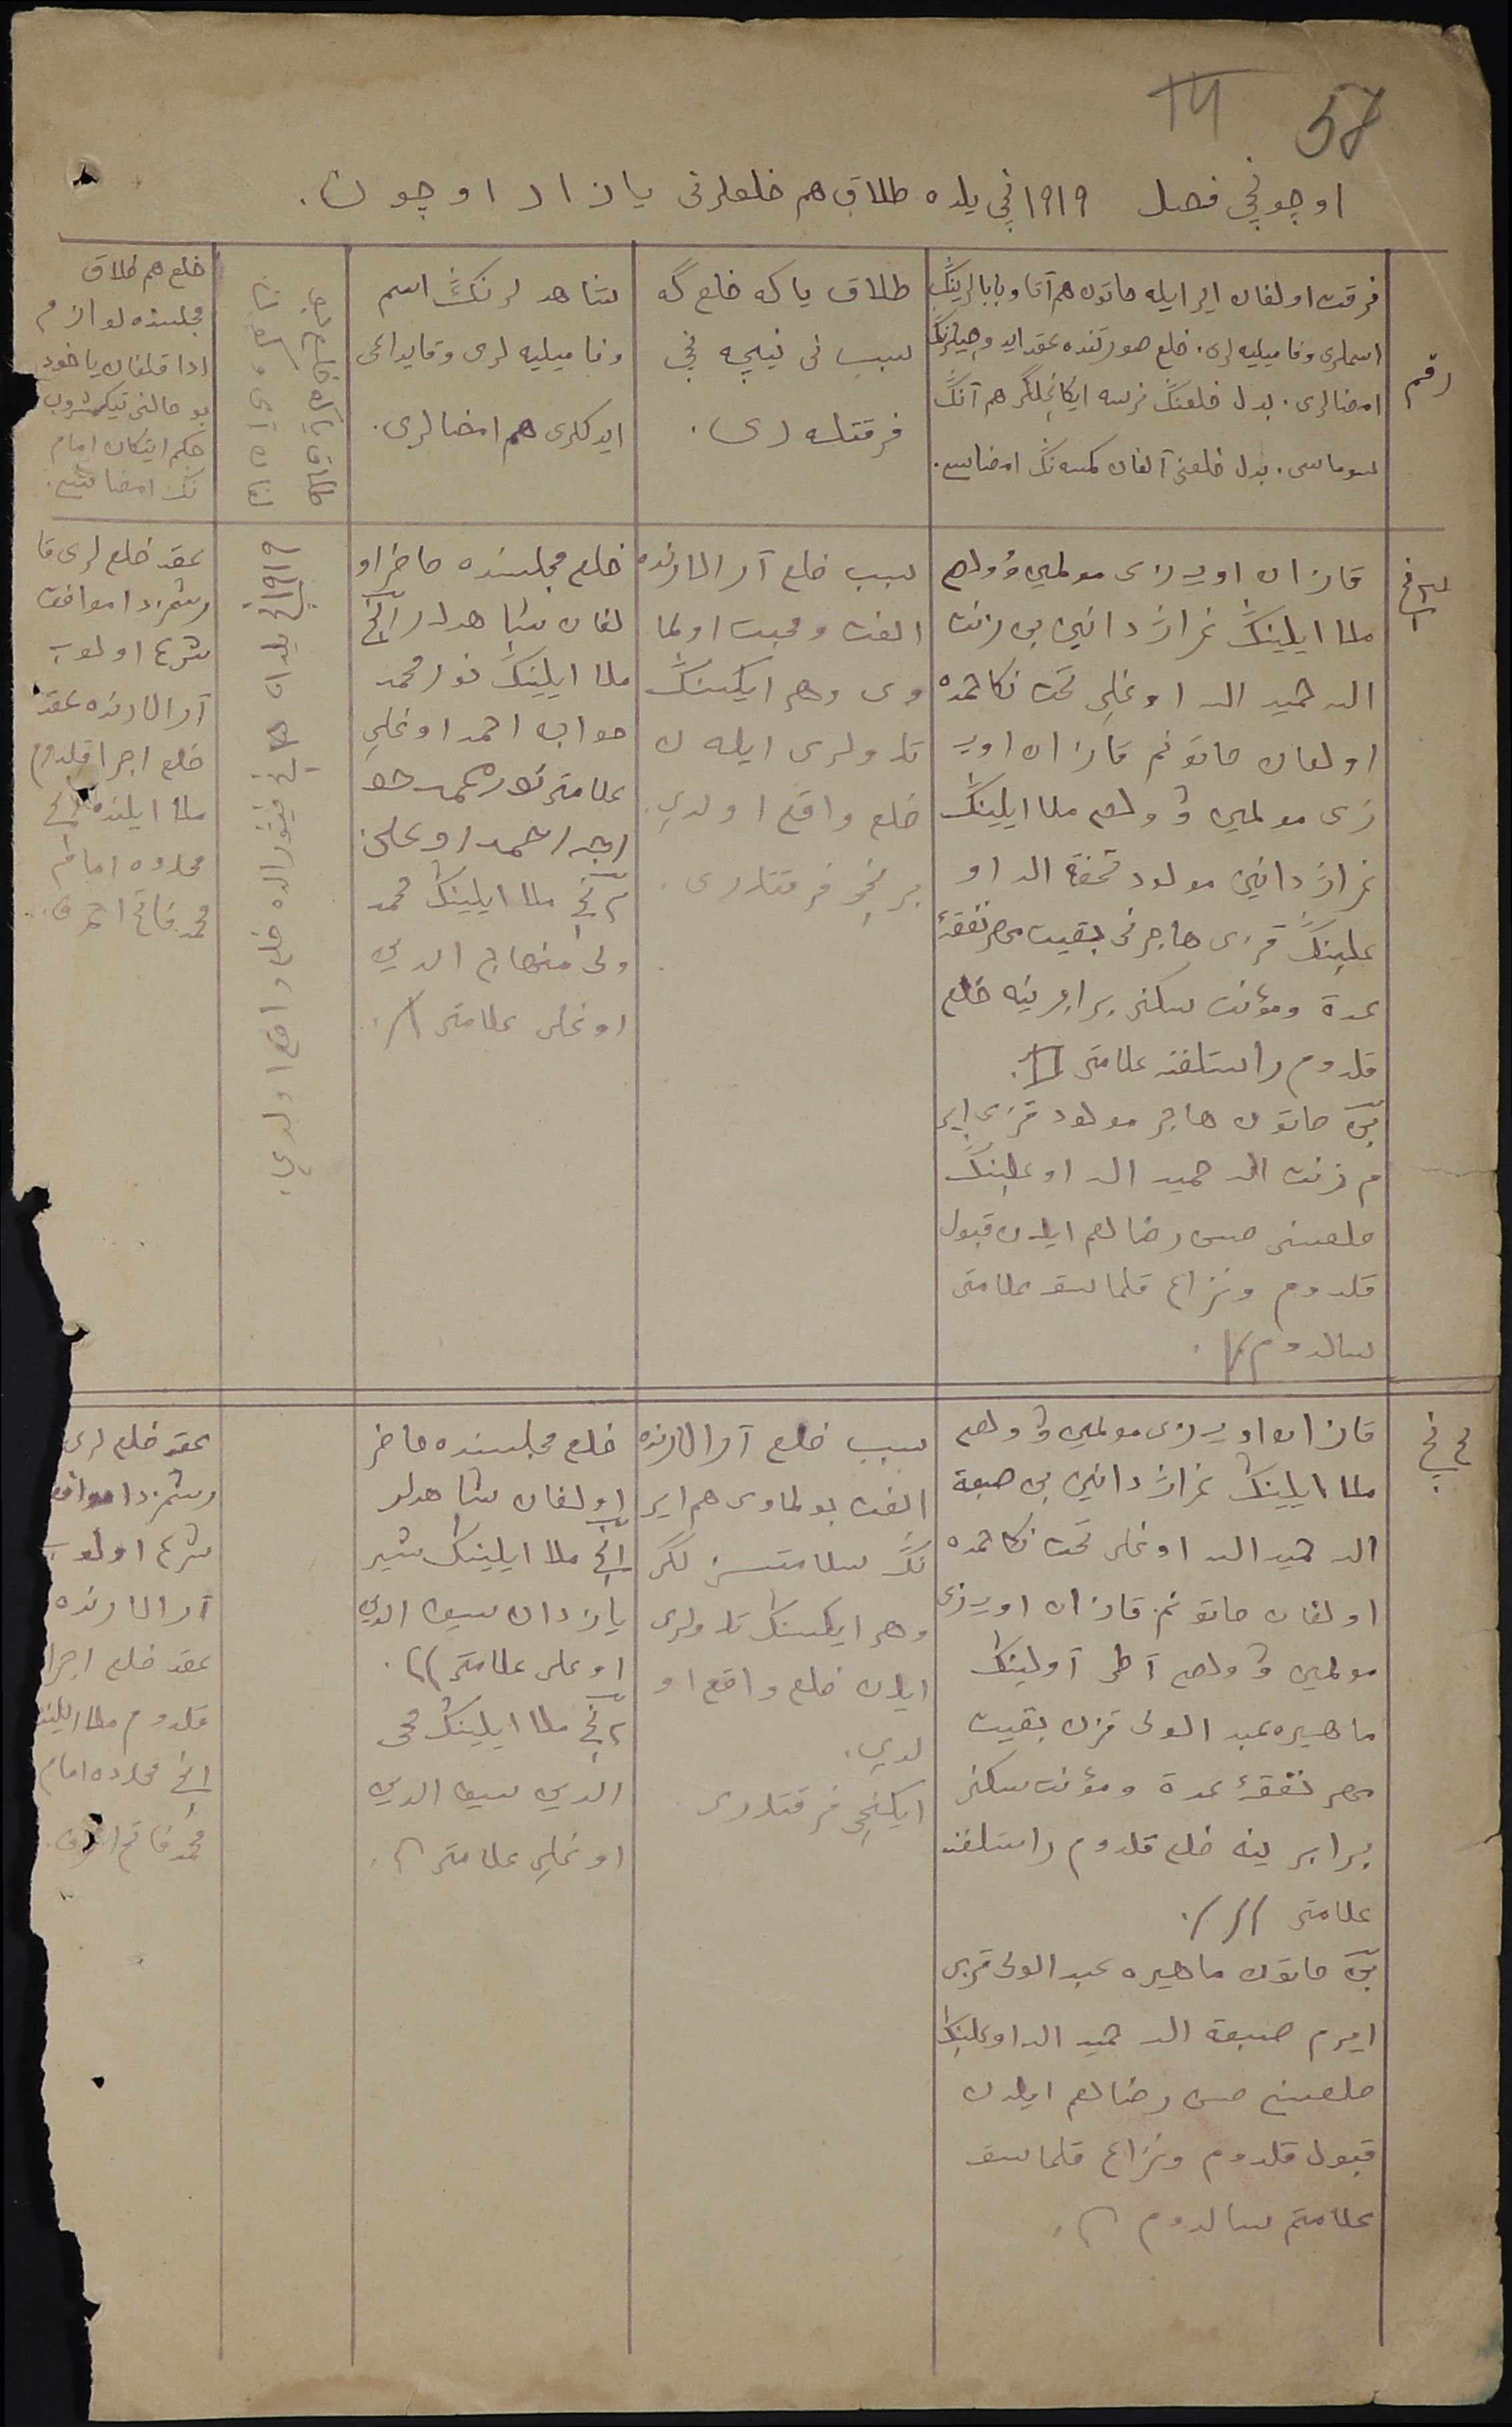 58
اوچونچی فصل ۱۹۱۹نچی یلده طلاق هم خلعلرنی یازار اوچون.
رقم
فرقت اولغان ایر ایله خاتون هم آتا و بابالرینڭ
اسملری وفامیلیه لری. خلع صورتنده عقد ایدوچیلرنڭ
امضالری. بدل خلعنڭ نرسه ایکانلگی هم آنڭ
سوماسی. بدل خلعنی آلغان کمسه نڭ امضاسی.
طلاق یاکه خلع گه
سبب نی نیچه نچی
فرقتلری.
شاهد لرنڭ اسم
وفامیلیه لری وقایداغی
ایدکلری هم امضالری.
خلع هم طلاق
مجلسنده لوازم
ادا قلغان یاخود
بو حالنی تیکشروب
حکم ایتکان امام
نڭ امضاسی.
برنچی
قازان اویازی مولمین وولصی
ملا ایلینڭ غراژدانین بن زنت
الله حمید الله اوغلی تحت نکاحمده
اولغان خاتونم قازان اویا
زی مولمین وولصی ملا ایلینڭ
غراژدانین مولود تحفة الله او
غلینڭ قزی هاجرنی بقیت مهر نفقهٔ
عدة ومؤنت سکنی برابرینه خلع
قلدوم راستلقنه علامتم
بن خاتون هاجر مولود قزی ایر
م زنت الله حمید الله اوغلینڭ
خلعینی حسن رضالغم ایلان قبول
قلدوم ونزاع قلماسقه علامتم
سالدوم
سبب خلع آرالارنده
الفت ومحبت اولما
وی وهر ایکیسنڭ
تلاولری ایله ن
خلع واقع اولدی.
برنچی فرقتلاری.
خلع مجلسنده حاضر او
لغان شاهدلر ۱نچی
ملا ایلینڭ نورمحمد
خواجه احمد اوغلی
علامتم نورمحمد خو
اجه احمد اوغلی.
۲نچی ملا ایلینڭ محمد
ولی منهاج الدین
اوغلی علامتم
خلع واقع اولدی.
عقد خلع لری قا
رشمزدا موافق
شرع اولوب
آرالارنده عقد
خلع اجرا قلدوم
ملا ایلنده ۱نچی
محلده امام
محمد فاتح
۲نچی
قازان اویازی مولمین وولصی
ملا ایلینڭ غراژدانین بن صبغة
الله حمید الله اوغلی تحت نکاحمده
اولغان خاتونم قازان اویازی
مولمین وولصی آطی آولینڭ
ماهیره عبد الولی قزن بقیت
مهر نفقهٔ عدة ومؤنت سکنی
برابرینه خلع قلدوم راستلقنه
علامتم ///.
بن خاتون ماهیره عبد الولی قزی
ایرم صبغة الله حمید الله اوغلینڭ
خلعینی حسن رضالغم ایلان
قبول قلدوم ونزاع قلماسقه
علامتم سالدوم
سبب خلع آرالارنده
الفت بولماوی هم ایر
نڭ سلامتسز لگی
وهر ایکیسنڭ تلاولری
ایلان خلع واقع او
لدی.
ایکنچی فرقتلاری
خلع مجلسنده حاضر
اولغان شاهدلر
۱نچی ملا ایلینڭ شیر
یازدان سیف الدین
اوغلی علامتم ((.
۲نچی ملا ایلینڭ محی
الدین سیف الدین
اوغلی علامتم
عقد خلع لری
رشمزدا موافق
شرع اولوب
آرالارنده
عقد خلع اجرا
قلدوم ملا ایلینڭ
۱نچی محلده امام
محمد فاتح